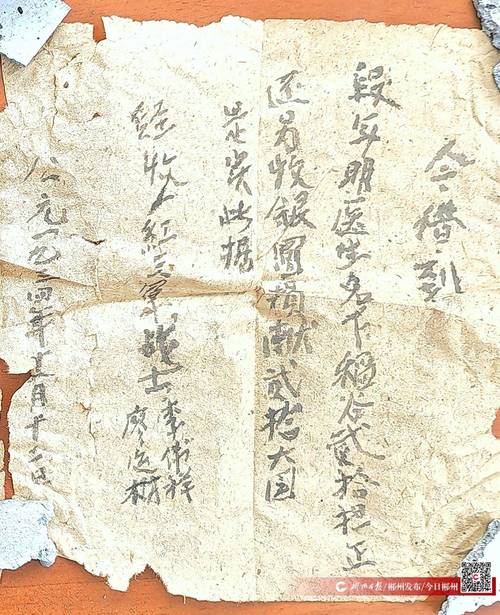 今借到
段年明医生名下稻谷贰拾担正
还另收银圆捐献贰拾大国
是实此据
经收人红三军战士李代祥
廖运材
公元一九三四年十一月十二日
郴州日报/郴州发布/今日郴州